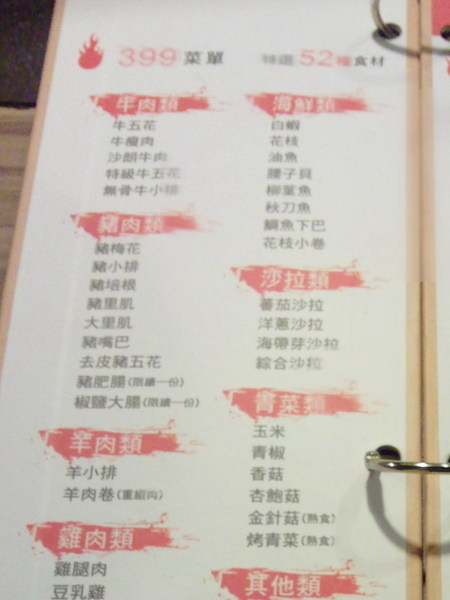 399 菜單
特選 52種食材
牛肉類
牛五花
牛瘦肉
沙朗牛肉
特級牛五花
無骨牛小排
豬肉類
豬梅花
豬小排
豬培根
豬里肌
大里肌
豬嘴巴
去皮豬五花
豬肥腸(限續一份)
椒鹽大腸(限續一份)
羊肉類
羊小排
羊肉卷(重組肉)
雞肉類
雞腿肉
豆乳雞
海鮮類
白蝦
花枝
油魚
腰子貝
柳葉魚
秋刀魚
鯛魚下巴
花枝小卷
沙拉類
蕃茄沙拉
洋蔥沙拉
海帶芽沙拉
綜合沙拉
青菜類
玉米
青椒
香菇
杏鮑菇
金針菇(熟食)
烤青菜(熟食)
其他類